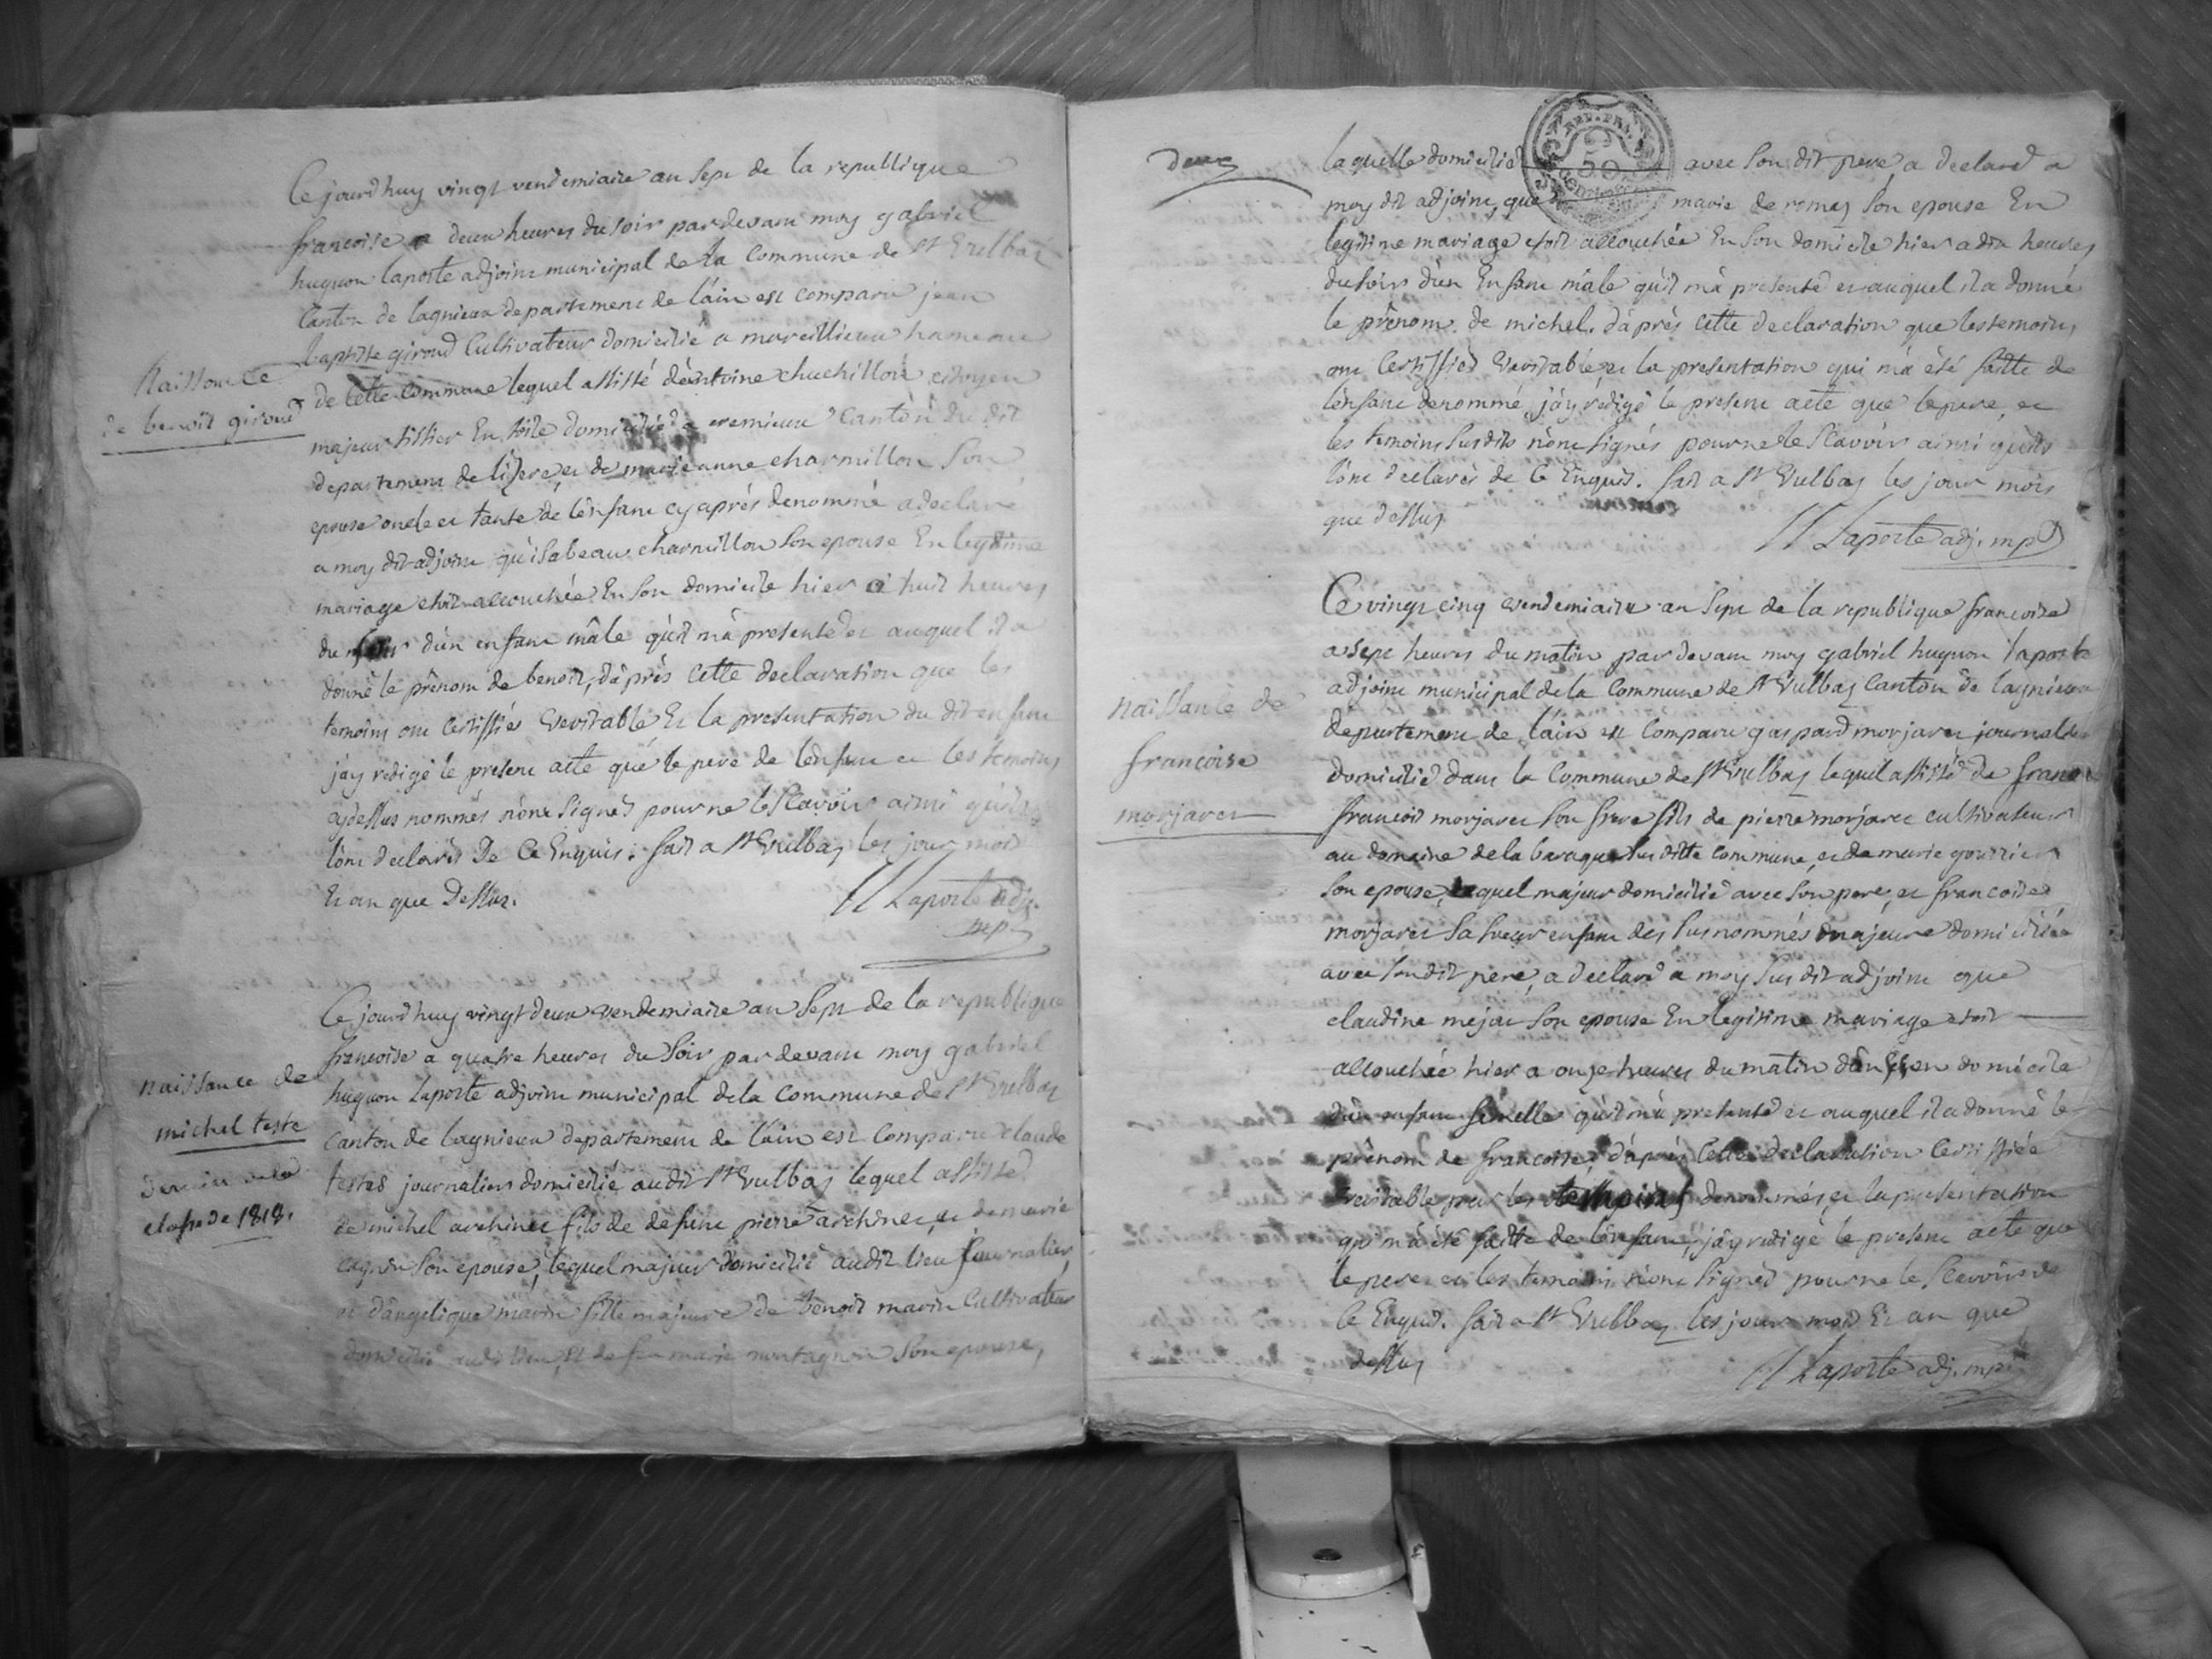 Ce jourd'huy vingt vendemiaire an sept de la republique
françoise a deux heures du soir pardevant moy gabriel
huguon laporte adjoint municipal de la Commune de St Vulbas
Canton de lagnieux departement de l'ain est comparu jean
baptiste giroud Cultivateur domicilié a marcillieux hameau
Naissance
de benoit giroud
de cette commune lequel assisté d'antoine chuchillon citoyen
majeur tissier En toile domicilié a cremieux canton du dit
departement de lizere, et de marieanne charmillon son
epouse oncle et tante de lenfant cy après denommé a declaré
a moy dit adjoint qu'isabeau charmillon son epouse En legitime
mariage etoit accouchée En son domicile hier a huit heures
du soir d'un enfant mâle qu'il m'a presenté et auquel il a
donné le prénom de benoit, d'après cette declaration que les
temoins ont certiffiés veritable Et la presentation du dit enfant
j'ay redigé le present acte que le pere de lenfant et les temoins
cydessus nommés n'ont signés pour ne le sçavoir ainsi qu'ils
l'ont declarés De Ce Enquis. fait a St Vulbas les jour mois
Et an que Dessus.
Laporte adj.
mp
Ce jourd'huy vingt deux vendemiaire an sept de la republique
françoise a quatre heures du soir pardevant moy gabriel
huguon laporte adjoint municipal dela Commune de St Vulbas
naissance de
michel teste
classe de 1818.
canton de lagnieux departement de l'ain est comparu claude
testes journalier domicilié audit St Vulbas lequel assisté
de michel archinet fils de defunt pierre archinet, et de marie
son epouse, lequel majeur domicilié audit lieu journalier,
et d'angelique marin fille majeure de benoit marin Cultivateur
domicilié audit lieu, Et de feu marie montagnon son epouse,
deux
REP. FRA.
50
laquelle domicilié avec son dit pere, a declaré a
moy dit adjoint, que marie de romas son epouse En
legitime mariage etoit accouchée En son domicile hier a dix heures
du soir d'un Enfant mâle qu'il m'a presenté et auquel il a donné
le prénom de michel. d'après cette declaration que les temoins,
ont Certiffiés veritable et la presentation qui m'a été faitte de
l'enfant denommé, j'ay redigé le present acte que le pere, et
les temoins susdits n'ont signés pour ne le sçavoir ainsi qu'ils
l'ont declarés de Ce Enquis. fait a St Vulbas les jour mois
que dessus
Laporte adj. mp
Ce vingt cinq vendemiaire an sept de la republique françoise
a sept heures du matin par devant moy gabriel huguon laporte
adjoint municipal de la Commune de St Vulbas Canton de lagnieux
naissance de
françoise
morjaret
departement de l'ain est comparu gaspard morjaret journalier
domicilié dans la Commune de St Vulbas lequel assisté de
françois morjaret son frere fils de pierre morjaret cultivateur
au domaine dela baraque sus ditte commune, et de marie
son epouse, lequel majeur domicilié avec son pere, et françoise
morjaret sa soeur enfant des susnommés majeure domiciliée
avec son dit pere, a declaré a moy sus dit adjoint que
claudine mejat son epouse En legitime mariage etoit
accouchée hier a onze heures du matin dans son domicile
d'un enfant fémelle qu'il m'a presenté et auquel il a donné le
prénom de françoise, d'après cette declaration Certiffiée
veritable par les temoins denommés, et la presentation
qui m'a été faitte de lenfant, j'ay redigé le present acte que
le pere et les temoins n'ont signés pour ne le sçavoir de
Ce Enquis. fait a St Vulbas les jour mois Et an que
dessus
Laporte adj. mp